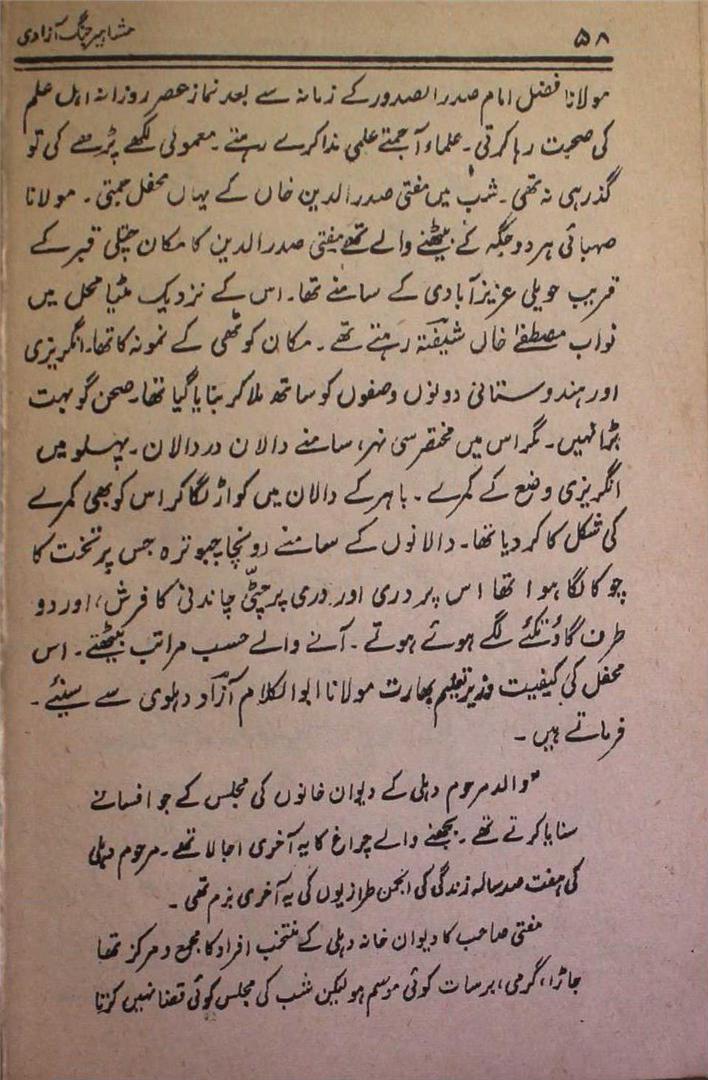 ۵۸
مشاہیر جنگ آزادی
مولانا فضل امام صدر الصدور کے زمانہ سے بعد نماز عصر روزانہ اہل علم
کی صحبت رہا کرتی۔ علماء آ جمتے علمی مذاکرے رہتے۔ معمولی لکھے پڑھے کی تو
گذر ہی نہ تھی۔ شب میں مفتی صدر الدین خاں کے یہاں محفل جمتی۔ مولانا
صہبائی ہر دو جگہ کے بیٹھنے والے تھے مفتی صدر الدین کا مکان چتلی قبر کے
قریب حویلی عزیز آبادی کے سامنے تھا۔ اس کے نزدیک مٹیا محل میں
نواب مصطفےٰ خاں شیفتہ رہتے تھے۔ مکان کوٹھی کے نمونہ کا تھا۔ انگریزی
اور ہندوستانی دونوں وصفوں کو ساتھ ملا کر بنایا گیا تھا۔ صحن گو بہت
بڑا نہیں۔ مگر اس میں مختصر سی نہر، سامنے دالان در دالان۔ پہلو میں
انگریزی وضع کے کمرے۔ باہر کے دالان میں کواڑ لگا کر اس کو بھی کمرے
کی شکل کا کر دیا تھا۔ دالانوں کے سامنے اونچا چبوترہ جس پر تخت کا
چوکا لگا ہوا تھا اس پر دری اور دری پر چٹّی چاندنی کا فرش، اور دو
طرف گاؤ تکئے لگے ہوئے ہوتے۔ آنے والے حسب مراتب بیٹھتے۔ اس
محفل کی کیفیت وزیر تعلیم بھارت مولانا ابو الکلام آزاد دہلوی سے سنیئے۔
فرماتے ہیں۔
"والد مرحوم دہلی کے دیوان خانوں کی مجلس کے جو افسانے
سنایا کرتے تھے۔ بجھنے والے چراغ کا یہ آخری اجالا تھے۔ مرحوم دہلی
کی ہفت صد سالہ زندگی کی انجمن طرازیوں کی یہ آخری بزم تھی۔
مفتی صاحب کا دیوان خانہ دہلی کے منتخب افراد کا مجمع و مرکز تھا
جاڑا، گرمی، برسات کوئی موسم ہو لیکن شب کی مجلس کوئی قضا نہیں کرتا